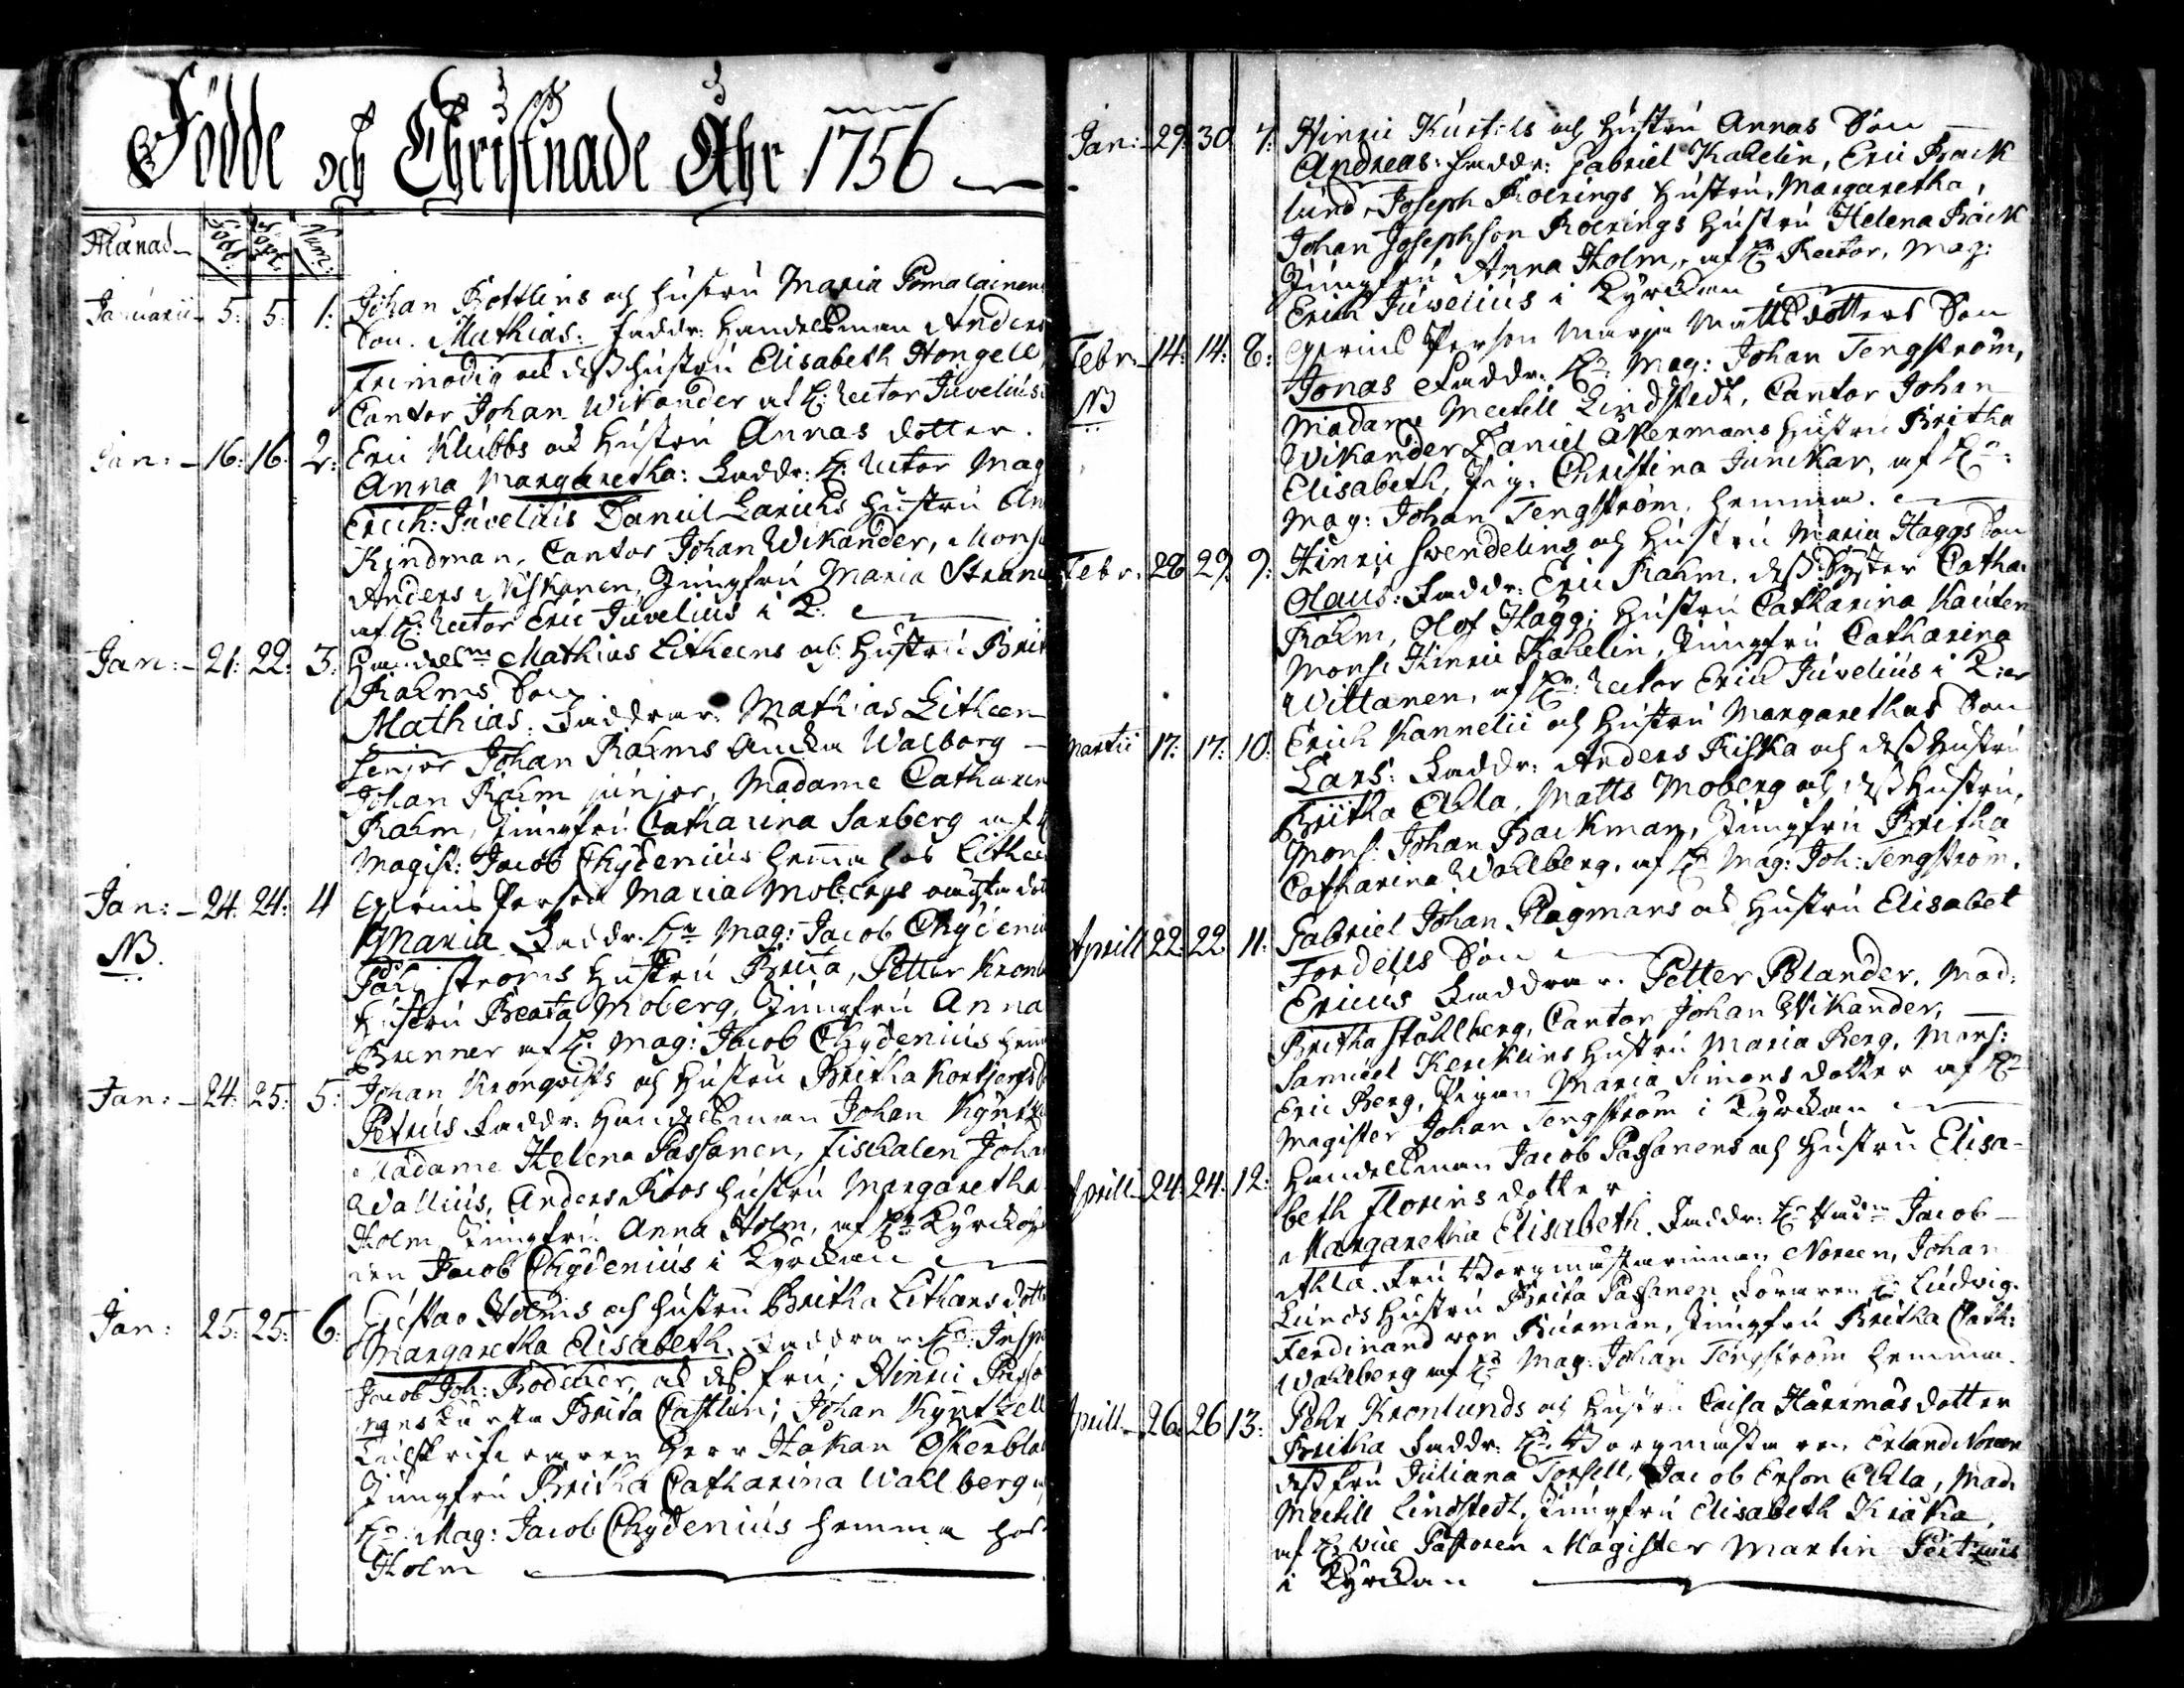 Födde och Christnade Åhr 1756
Månad Född: Döpt: Num:
Januarii 5: 5: 1: Johan Bottlins och hustru Maria Pomalainens
Son. Mathias: Faddr: Handelsman Anders
Frimodig och dess hustru Elisabeth Hongell,
Cantor Johan Wikander af H: Rector Juvelius
Jan: 16: 16: 2: Eric Klubbs och Hustru Annas dotter.
Anna Margaretha: Faddr: H: Rector Mag
Erich: Juvelius Daniel Larichs Hustru An
Kindman, Cantor Johan Wikander, Mons
Anders Niskanen, Jungfru Maria Stran
af H: Rector Eric Juvelius i K:
Jan: 21: 22: 3: Handelsm Mathias Litheens och Hustru Brit
Rahms Son.
Mathias: Faddrar: Mathias Litheen
Senjor Johan Rahms Enckia Walborg
Johan Rahm junjor, Madame Catharin
Rahm, Jungfru Catharina Sarberg af H
Magist: Jacob Chydenius hemma hos Lithee
Jan: 24: 24: 4 Maria Mobergs oächta dot
NB. Maria Faddr. Hr Mag: Jacob Chydeniu
ströms Hustru Brita, Petter Kronl
Hustru Beata Moberg, Jungfru Anna
Brenner af H: Mag: Jacob Chydenius hem
Jan: 24: 25: 5: Johan Kronqvists och Hustru Britha Kortjergs
Petrus Faddr: Handelsman Johan Kyntz
Madame Helena Passanen, Fiscalen Joha
Wallius, Anders Roos hustru Margaretha
Holm Jungfru Anna Holm, af Hr
Jacob Chydenius i Kyrckan
Jan: 25: 25: 6: Gustav Holms och hustru Britha Lithans dott
Margaretha Elisabeth. Faddrar Hr: Insp
Jacob Joh: Bodecker, och dess fru; Hinric
Brita Castlin; Johan Kyntzell
Herr Håkan Österbla
Jungfru Britha Catharina Wahlberg
Hr Mag: Jacob Chydenius hemma hos
Holm
Jan: 29: 30 7: Hinric Kurtels och hustru Annas Son
Andreas: Faddr: Gabriel Kahelin, Eric Back
lund, Joseph Roerings Hustru, Margaretha,
Johan Josephson Roerings Hustru Helena Bäck
Jungfru Anna Holm, af Hr Rector, Mag:
Erich Juvelius i Kyrckan
Febr: 14: 14: 8: Person Marja Mattsdotters Son
NB Jonas Faddr. Hr: Mag: Johan Tengström,
Madame Mechill Lindstedt, Cantor Johan
Wikander Daniel Åkermans hustru Britha
Elisabeth, Pig: Christina Junckar, af Hr:
Mag: Johan Tengström, hemma.
Febr. 28 29: 9: Hinric Swendelins och hustru Maria Haggs Son
Olaus: Faddr: Eric Rahm, dess Syster Catha:
Rahm, Olof Hagg; Hustru Catharina Kauten
Mons: Hinric Kahelin, Jungfru Catharina
Wittanen, af Hr: Rector Erich Juvelius i K:an
Martii 17: 17: 10: Erich Kannelii och Hustru Margarethas Son
Lars: Faddr: Anders Riska och dess Hustru
Britha Ahla, Matts Moberg och dess Hustru,
Mons: Johan Backman, Jungfru Britha
Catharina Wahlberg, af Hr Mag: Joh: Tengström.
Aprill 22: 22 11: Gabriel Johan Plagmans och Hustru Elisabet
Fordells Son
Ericus Faddrar. Petter Polander, Mad:
Britha Ståhlberg, Cantor Johan Wikander,
Samuel Kecklins Hustru Maria Berg, Mons:
Eric Berg, Pigan Maria Simons dotter af Hr
Magister Johan Tengström i Kyrckan
Aprill 24: 24: 12: Handelsman Jacob Passanens och Hustru Elisa-
beth Florins dotter
Margaretha Elisabeth. Faddr: Hr Jacob
Ahla. Fru Borgmästarinnan Noreen, Johan
Lunds Hustru Brita Passanen Hr Ludvig
Ferdinand von Burman, Jungfru Britha Cath:
Wahlberg af Hr Mag: Johan Tengström hemma.
Aprill 26: 26 13: Pehr Kronlunds och Hustru Caisa Härmäs dotter
Britha Faddr: Hr: Borgmästaren Erland Noreen
dess fru Juliana Torsell, Jacob Erson Ahla, Mad:
Mechill Lindstedt, Jungfru Elisabeth Kråka,
af Hr Vice Pastoren Magister Martin
i Kyrckan